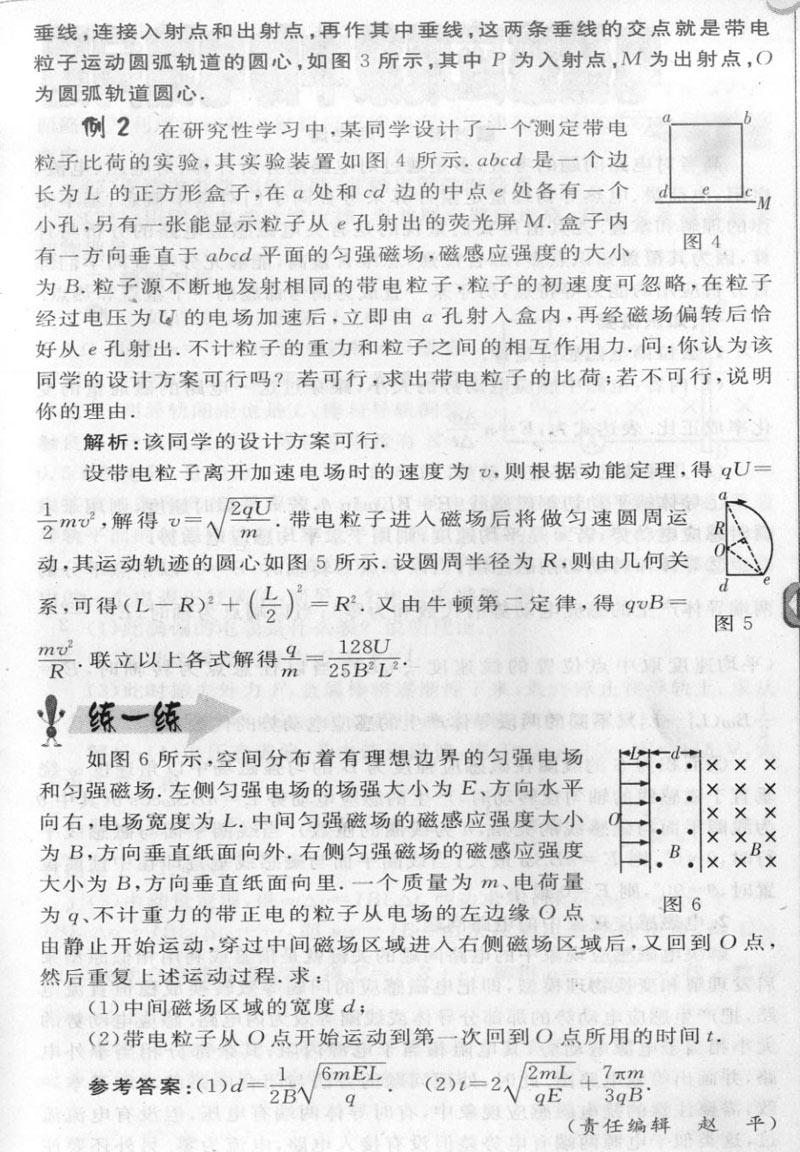 垂线,连接入射点和出射点,再作其中垂线,这两条垂线的交点就是带电
粒子运动圆弧轨道的圆心,如图 3 所示,其中 P 为入射点,M 为出射点,O
为圆弧轨道圆心.
例 2 在研究性学习中,某同学设计了一个测定带电
粒子比荷的实验,其实验装置如图 4 所示. abcd 是一个边
长为 L 的正方形盒子,在 a 处和 cd 边的中点 e 处各有一个
小孔,另有一张能显示粒子从 e 孔射出的荧光屏 M. 盒子内
有一方向垂直于 abcd 平面的匀强磁场,磁感应强度的大小
为 B. 粒子源不断地发射相同的带电粒子,粒子的初速度可忽略,在粒子
经过电压为 U 的电场加速后,立即由 a 孔射入盒内,再经磁场偏转后恰
好从 e 孔射出. 不计粒子的重力和粒子之间的相互作用力. 问:你认为该
同学的设计方案可行吗? 若可行,求出带电粒子的比荷;若不可行,说明
你的理由.
a b
d e c
M
图 4
解析:该同学的设计方案可行.
设带电粒子离开加速电场时的速度为 v,则根据动能定理,得 qU=
1/2 mv²,解得 v=√(2qU/m). 带电粒子进入磁场后将做匀速圆周运
动,其运动轨迹的圆心如图 5 所示. 设圆周半径为 R,则由几何关
系,可得(L-R)²+(L/2)²=R². 又由牛顿第二定律,得 qvB=
mv²/R. 联立以上各式解得 q/m=128U/25B²L².
a
R
O
d e
图 5
练一练
如图 6 所示,空间分布着有理想边界的匀强电场
和匀强磁场. 左侧匀强电场的场强大小为 E、方向水平
向右,电场宽度为 L. 中间匀强磁场的磁感应强度大小
为 B,方向垂直纸面向外. 右侧匀强磁场的磁感应强度
大小为 B,方向垂直纸面向里. 一个质量为 m、电荷量
为 q、不计重力的带正电的粒子从电场的左边缘 O 点
由静止开始运动,穿过中间磁场区域进入右侧磁场区域后,又回到 O 点,
然后重复上述运动过程. 求:
L d
O
B B
图 6
(1)中间磁场区域的宽度 d;
(2)带电粒子从 O 点开始运动到第一次回到 O 点所用的时间 t.
参考答案:(1)d=1/2B √(6mEL/q). (2)t=2√(2mL/qE)+7πm/3qB.
(责任编辑 赵 平)